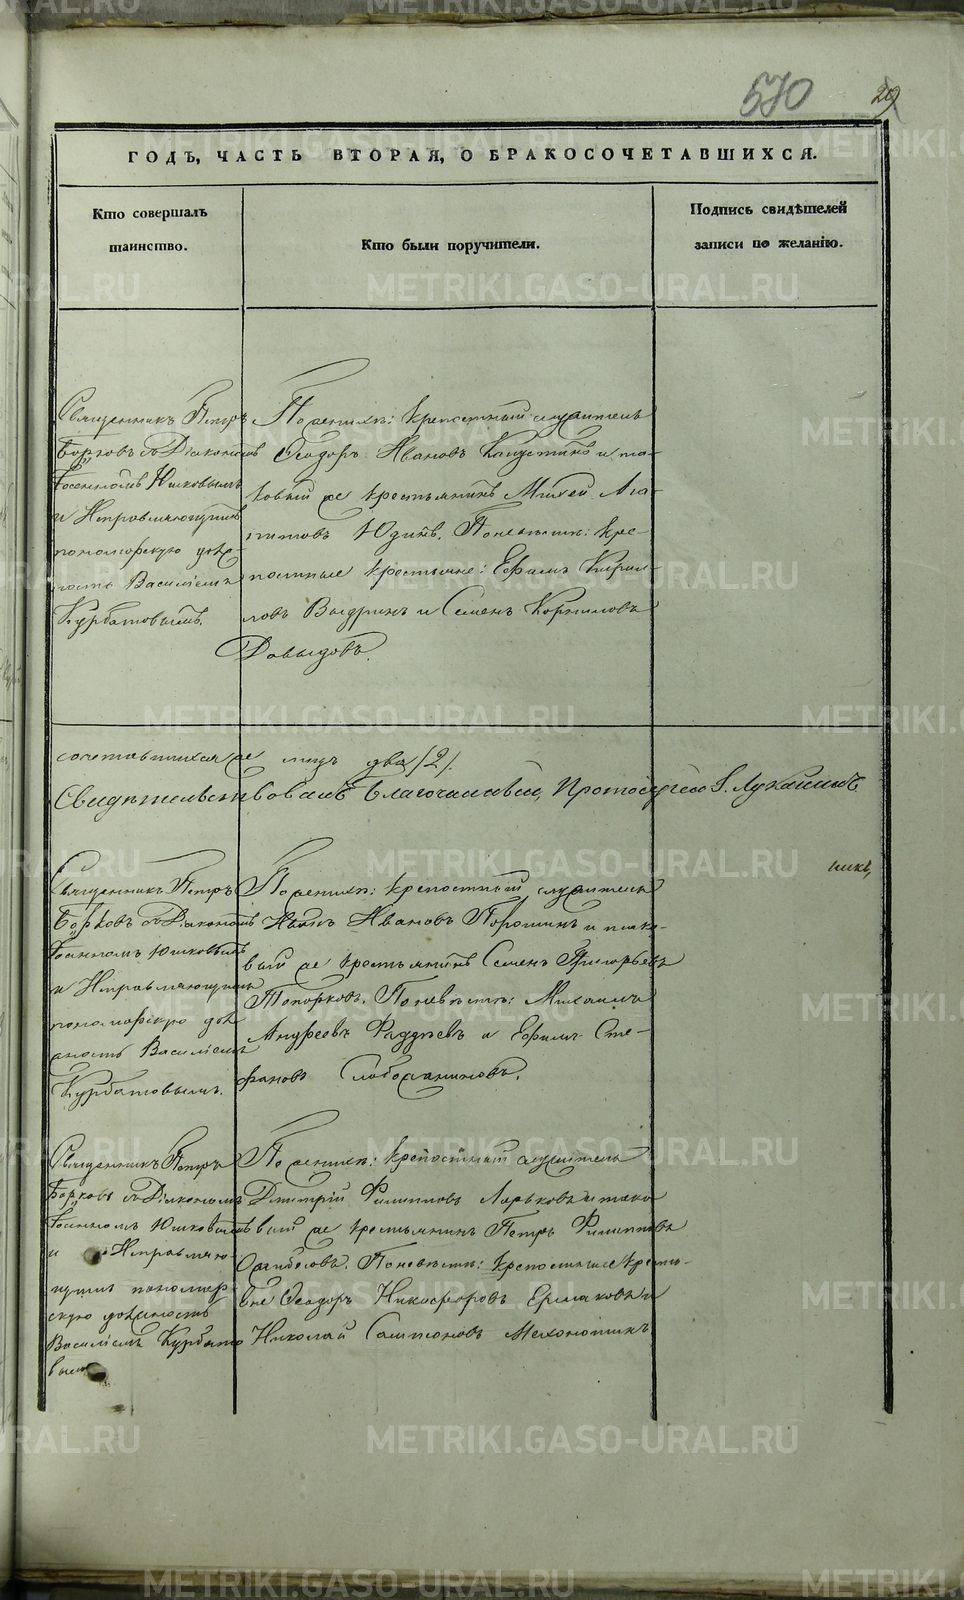 570
29
ГОДЪ, ЧАСТЬ ВТОРАЯ, О БРАКОСОЧЕТАВШИХСЯ.
Кто совершалъ
таинство.
Кто были поручители.
Подпись свидѣтелей
записи по желанію.
Священникъ Петръ
Борковъ съ Діакономъ
Іоанномъ Юшковымъ
и Исправляющимъ
пономарскую долж-
ность Василіемъ
Курбатовымъ.
По женихѣ: крепостный служитель
Ѳеодоръ Ивановъ Капустинъ и та-
ковый же крестьянинъ Михей Ага-
питовъ Юдинъ. По невѣстѣ: кре-
постные крестьяне: Ефимъ Кирил-
ловъ Выдринъ и Семенъ Корниловъ
Давыдовъ.
сочетавшихся же лицъ два /2/.
Свидѣтельствовалъ Благочинный, Протоіерей
Священникъ Петръ
Борковъ съ Діакономъ
Іоанномъ Юшковымъ
и Исправляющимъ
пономарскую дол
жность Василіемъ
Курбатовымъ.
По женихѣ: крепостный служитель
Иванъ Ивановъ Порошинъ и тако-
вый же крестьянинъ Семенъ Григорьевъ
Топорковъ. По невѣстѣ: Михаилъ
Андреевъ Фаддѣевъ и Ефимъ Сте-
фановъ
никъ
Священникъ Петръ
Борковъ съ Діакономъ
Іоанномъ Юшковымъ
и Исправляю-
щимъ пономар
скую должность
Василіемъ Курбато
вымъ
По женихѣ: крепостный служитель
Дмитрій Филипповъ Ларьковъ и тако
вый же крестьянинъ Петръ Филипповъ
По невѣстѣ: крепостные кресть-
яне Ѳеодоръ Никифоровъ Ермаковъ и
Николай Самсоновъ Механошинъ
METRIKI.GASO-URAL.RU